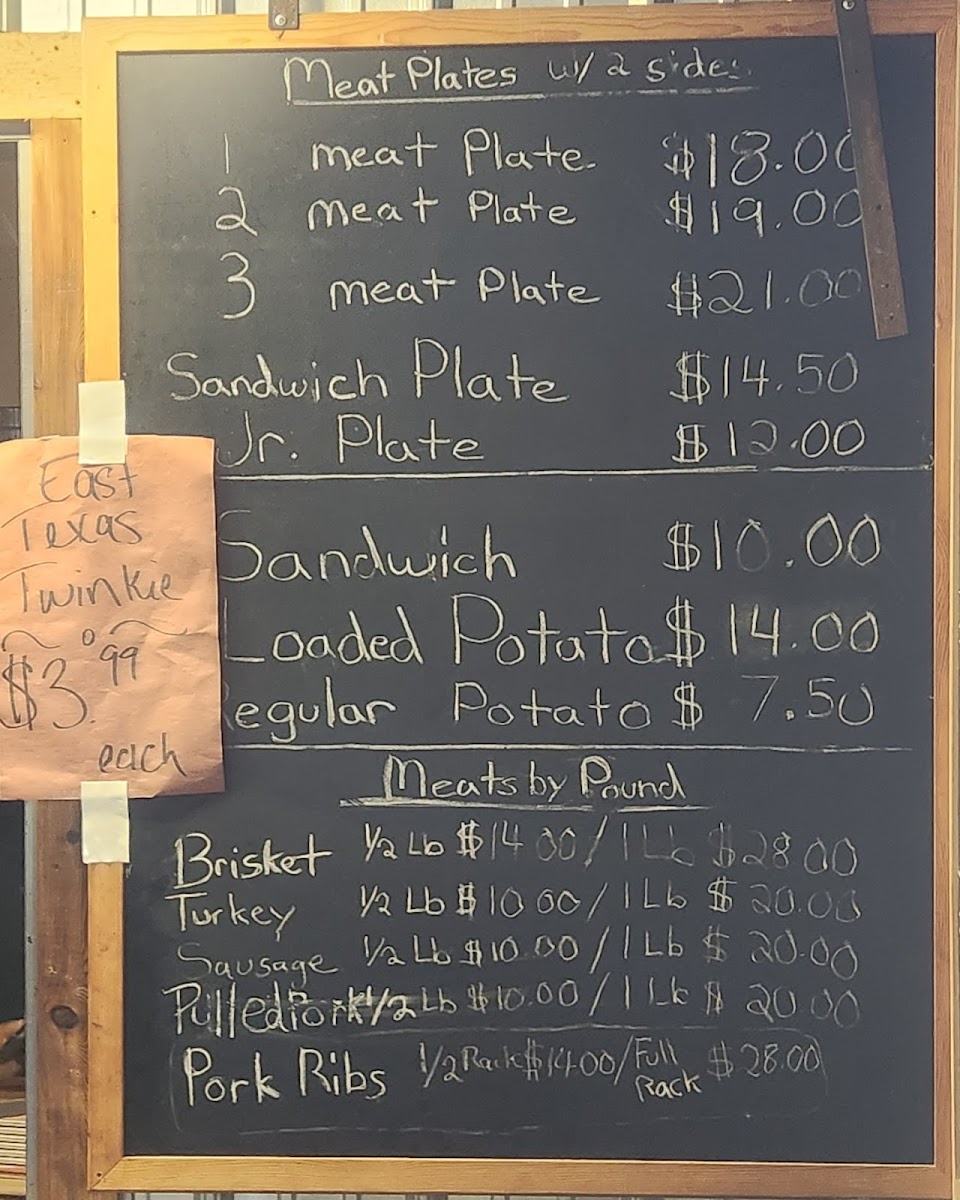 Meat Plates w/ 2 sides
1 meat Plate $18.00
2 meat Plate $19.00
3 meat Plate $21.00
Sandwich Plate $14.50
Jr. Plate $12.00
Sandwich $10.00
Loaded Potato $14.00
Regular Potato $7.50
Meats by Pound
Brisket 1/2 Lb $14.00/1 Lb $28.00
Turkey 1/2 Lb $10.00/1 Lb $20.00
Sausage 1/2 Lb $10.00/1 Lb $20.00
Pulled Pork 1/2 Lb $10.00/1 Lb $20.00
Pork Ribs 1/2 Rack $14.00/Full Rack $28.00
East
Texas
Twinkie
$3.99
each